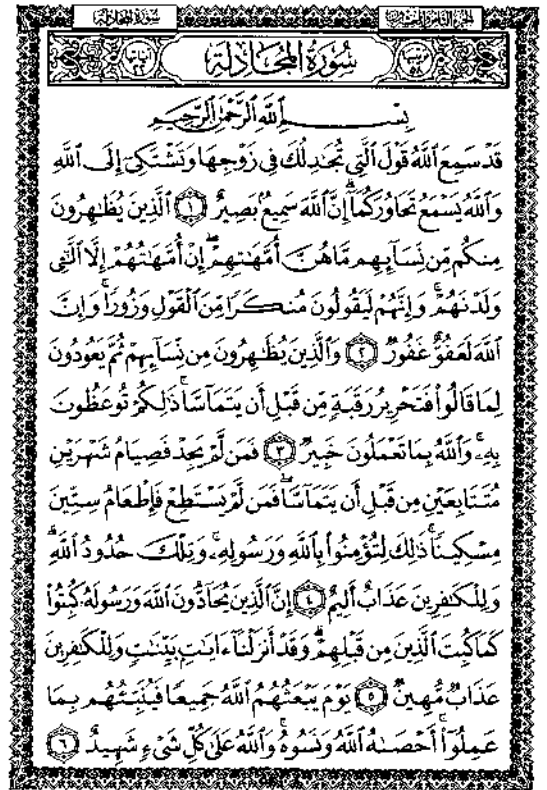 سُورَةُ المُجَادلَة
الجزء الثامن والعشرون
سُورَةُ الْمُجَادِلَة
بِسْمِ اللَّهِ الرَّحْمَٰنِ الرَّحِيمِ
قَدْ سَمِعَ اللَّهُ قَوْلَ الَّتِي تُجَادِلُكَ فِي زَوْجِهَا وَتَشْتَكِي إِلَى اللَّهِ
وَاللَّهُ يَسْمَعُ تَحَاوُرَكُمَا إِنَّ اللَّهَ سَمِيعٌ بَصِيرٌ ١ الَّذِينَ يُظَاهِرُونَ
مِنكُم مِّن نِّسَائِهِم مَّا هُنَّ أُمَّهَاتِهِمْ إِنْ أُمَّهَاتُهُمْ إِلَّا اللَّائِي
وَلَدْنَهُمْ وَإِنَّهُمْ لَيَقُولُونَ مُنكَرًا مِّنَ الْقَوْلِ وَزُورًا وَإِنَّ
اللَّهَ لَعَفُوٌّ غَفُورٌ ٢ وَالَّذِينَ يُظَاهِرُونَ مِن نِّسَائِهِمْ ثُمَّ يَعُودُونَ
لِمَا قَالُوا فَتَحْرِيرُ رَقَبَةٍ مِّن قَبْلِ أَن يَتَمَاسَّا ذَٰلِكُمْ تُوعَظُونَ
بِهِ وَاللَّهُ بِمَا تَعْمَلُونَ خَبِيرٌ ٣ فَمَن لَّمْ يَجِدْ فَصِيَامُ شَهْرَيْنِ
مُتَتَابِعَيْنِ مِن قَبْلِ أَن يَتَمَاسَّا فَمَن لَّمْ يَسْتَطِعْ فَإِطْعَامُ سِتِّينَ
مِسْكِينًا ذَٰلِكَ لِتُؤْمِنُوا بِاللَّهِ وَرَسُولِهِ وَتِلْكَ حُدُودُ اللَّهِ
وَلِلْكَافِرِينَ عَذَابٌ أَلِيمٌ ٤ إِنَّ الَّذِينَ يُحَادُّونَ اللَّهَ وَرَسُولَهُ كُبِتُوا
كَمَا كُبِتَ الَّذِينَ مِن قَبْلِهِمْ وَقَدْ أَنزَلْنَا آيَاتٍ بَيِّنَاتٍ وَلِلْكَافِرِينَ
عَذَابٌ مُّهِينٌ ٥ يَوْمَ يَبْعَثُهُمُ اللَّهُ جَمِيعًا فَيُنَبِّئُهُم بِمَا
عَمِلُوا أَحْصَاهُ اللَّهُ وَنَسُوهُ وَاللَّهُ عَلَىٰ كُلِّ شَيْءٍ شَهِيدٌ ٦